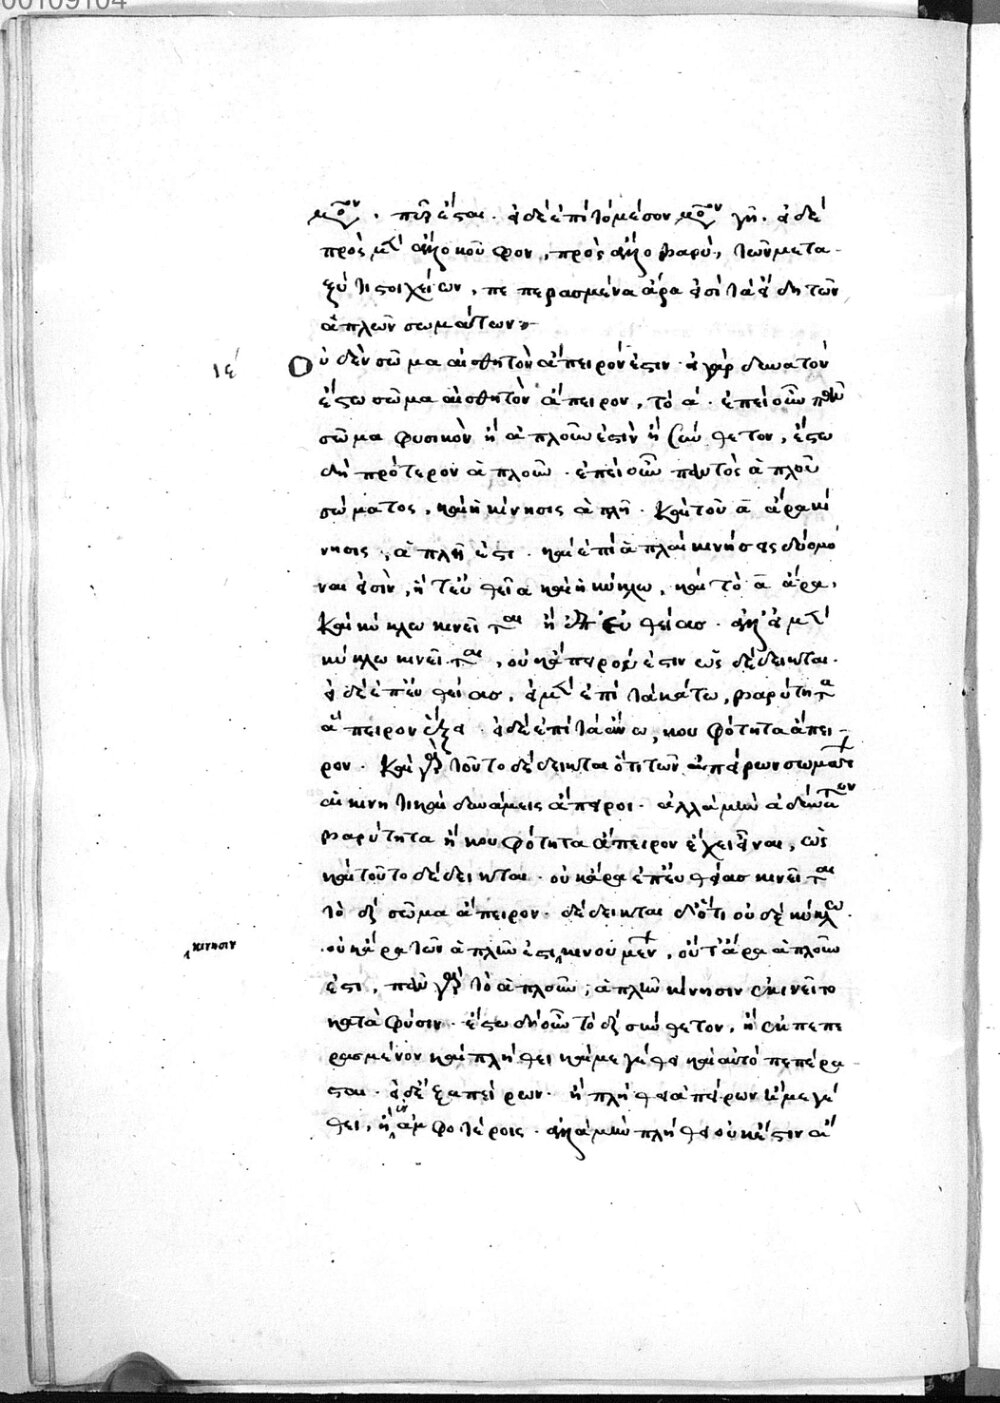 00109104
μόνον, πῦρ ἔσται. εἰ δὲ ἐπὶ τὸ μέσον μόνον γῆ. εἰ δὲ
πρὸς μὲν ἄλλο κοῦφον, πρὸς ἄλλο βαρὺ, τῶν μετα
ξύ τι στοιχείων, πεπερασμένα ἄρα εἰσὶ τὰ εἴδη τῶν
ἁπλῶν σωμάτων:
ιε΄ Οὐδὲν σῶμα αἰσθητὸν ἄπειρόν ἐστιν. εἰ γὰρ δυνατὸν
ἔστω σῶμα αἰσθητὸν ἄπειρον, τὸ α. ἐπεὶ οὖν πᾶν
σῶμα φυσικὸν ἢ ἁπλοῦν ἐστὶν ἢ σύνθετον, ἔστω
δὴ πρότερον ἁπλοῦν. ἐπεὶ οὖν παντὸς ἁπλοῦ
σώματος, καὶ ἡ κίνησις ἁπλῆ. καὶ τοῦ α ἄρα κί
νησις, ἁπλῆ ἐστι. καὶ ἐπεὶ ἁπλαῖ κινήσεις δύο μό
ναι εἰσὶν, ἥ τε εὐθεῖα καὶ ἡ κύκλω, καὶ τὸ α ἄρα,
καὶ κύκλω κινεῖται ἢ ἐπ' εὐθείας. ἀλλ' εἰ μὲν
κύκλω κινεῖται, οὐκ ἄπειρόν ἐστιν ὡς δέδεικται.
εἰ δὲ ἐπ' εὐθείας, εἰ μὲν ἐπὶ τὰ κάτω, βαρύτητα
ἄπειρον ἕξει. εἰ δὲ ἐπὶ τὰ ἄνω, κουφότητα ἄπει
ρον. καὶ γὰρ τοῦτο δέδεικται ὅτι τῶν ἀπείρων σωμάτων
αἱ κινητικαὶ δυνάμεις ἄπειροι. ἀλλὰ μὴν ἀδύνατον
βαρύτητα ἢ κουφότητα ἄπειρον ἔχει εἶναι, ὡς
καὶ τοῦτο δέδεικται. οὐκ ἄρα ἐπ' εὐθείας κινεῖται
τὸ δὲ σῶμα ἄπειρον. δέδεικται δὲ ὅτι οὐδὲ κύκλω.
κίνησιν οὐκ ἄρα τῶν ἁπλῶν ἐστι κινουμένων, οὔτ' ἄρα ἁπλοῦν
ἐστι, πᾶν γὰρ τὸ ἁπλοῦν, ἁπλῆν κίνησιν κινεῖται
κατὰ φύσιν. ἔστω δὴ οὖν τὸ δὲ σύνθετον, ἢ ἐκ πεπε
ρασμένων καὶ πλήθει καὶ μεγέθει καὶ αὐτὸ πεπέρα
σται. εἰ δὲ ἐξ ἀπείρων. ἢ πλήθει ἀπείρων ἢ μεγέ
θει, ἢ ἐν ἀμφοτέροις. ἀλλὰ μὴν πλήθει οὐκ ἔστιν ἄ